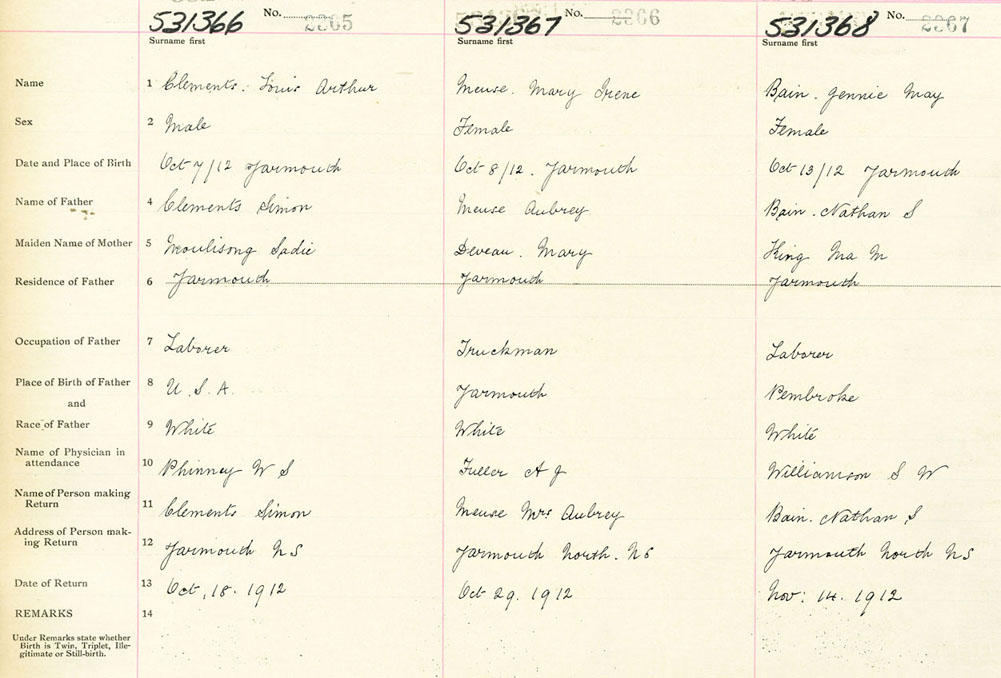 531366 No. 2365 531367 No. 2366 531368 No. 2367
Surname first Surname first Surname first
Name 1 Clements. Louis Arthur Meuse. Mary Irene Bain. Jennie May
Sex 2 Male Female Female
Date and Place of Birth Oct 7/12 Yarmouth Oct 8/12. Yarmouth Oct 13/12 Yarmouth
Name of Father 4 Clements Simon Meuse Aubrey Bain. Nathan S
Maiden Name of Mother 5 Sadie Deveau. Mary King M
Residence of Father 6 Yarmouth Yarmouth Yarmouth
Occupation of Father 7 Laborer Truckman Laborer
Place of Birth of Father 8 U. S. A. Yarmouth Pembroke
and
Race of Father 9 White White White
Name of Physician in
attendance 10 Phinney W S Fuller A J Williamson S W
Name of Person making
Return 11 Clements Simon Meuse Mrs Aubrey Bain. Nathan S
Address of Person mak-
ing Return 12 Yarmouth NS Yarmouth North. NS Yarmouth North NS
Date of Return 13 Oct, 18. 1912 Oct 29. 1912 Nov: 14. 1912
REMARKS 14
Under Remarks state whether
Birth is Twin, Triplet, Ille-
gitimate or Still-birth.